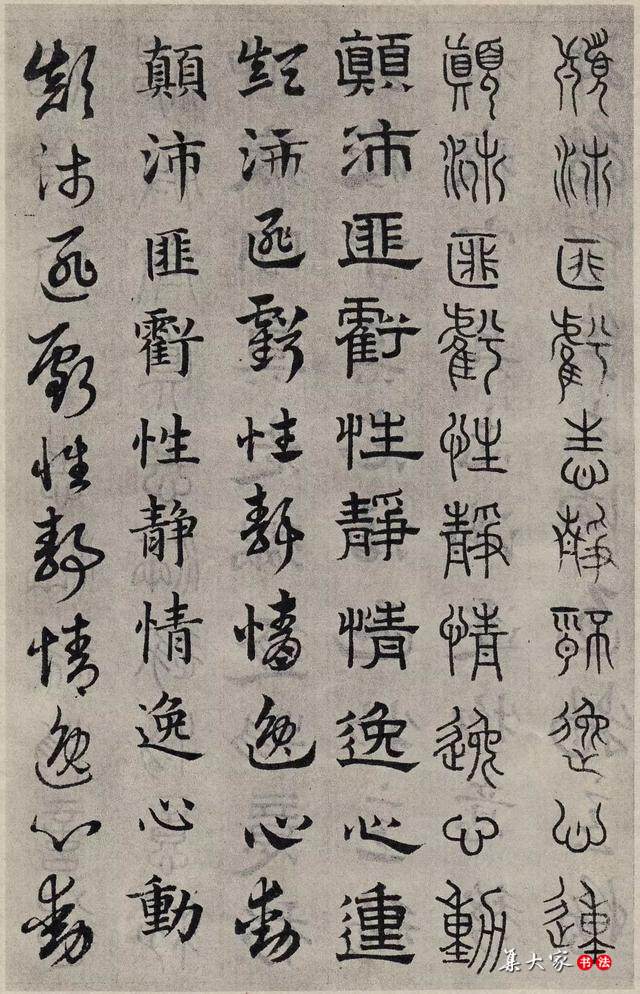 顛沛匪虧性靜情逸心動
顛沛匪虧性靜情逸心動
顛沛匪虧性靜情逸心動
顛沛匪虧性靜情逸心動
顛沛匪虧性静情逸心動
顛沛匪虧性靜情逸心動
集大家书法